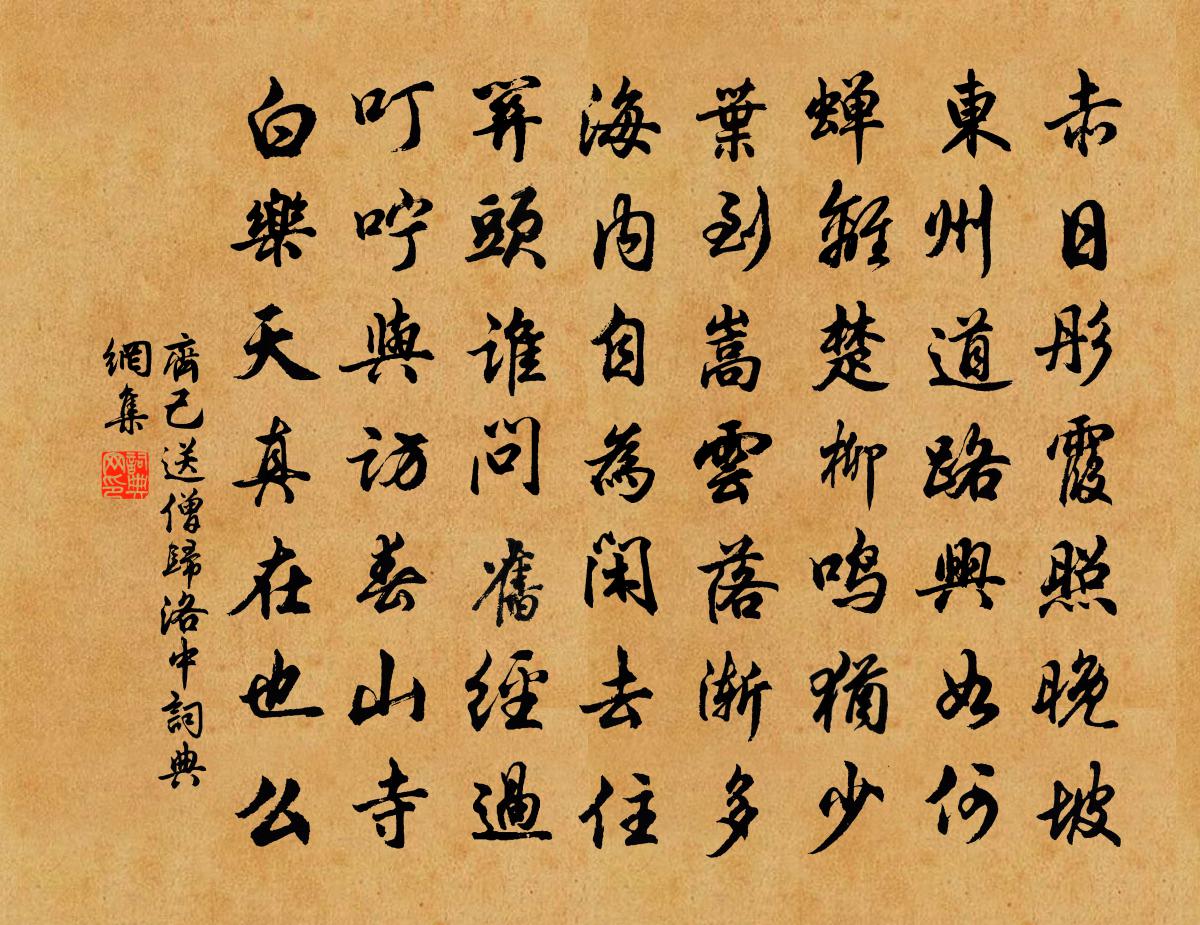 赤日彤霞照晚坡
東州道路興如何
蟬離楚柳鳴猶少
葉到嵩雲落漸多
海内自為閑去住
關頭誰問舊經過
叮嚀與訪春山寺
白樂天真在也么
齊己送僧歸洛中詞典
網集
詞典
网印